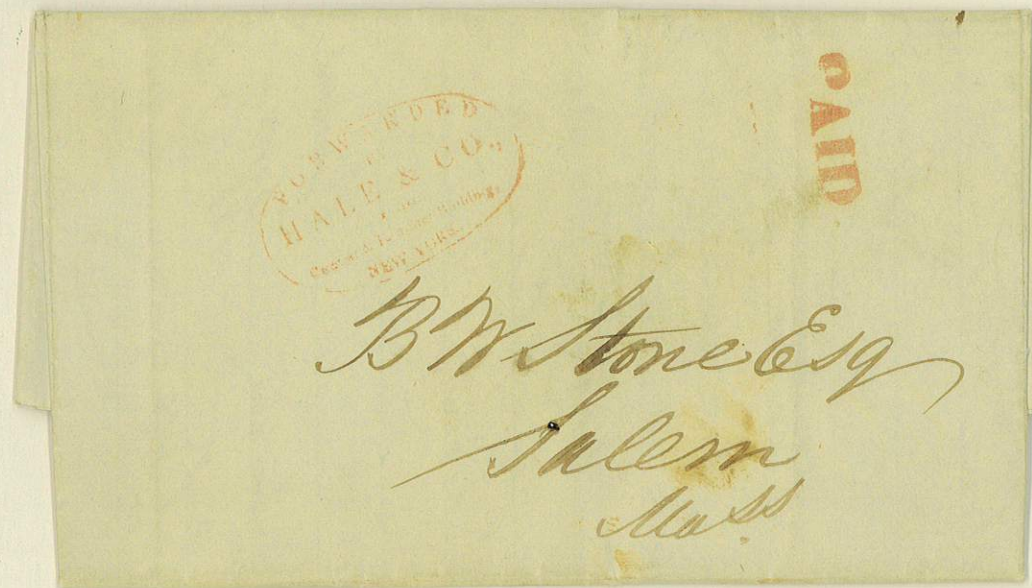 FORWARDED
HALE & CO.,
NEW YORK.
PAID
B W Stone Esq
Salem
Mass.